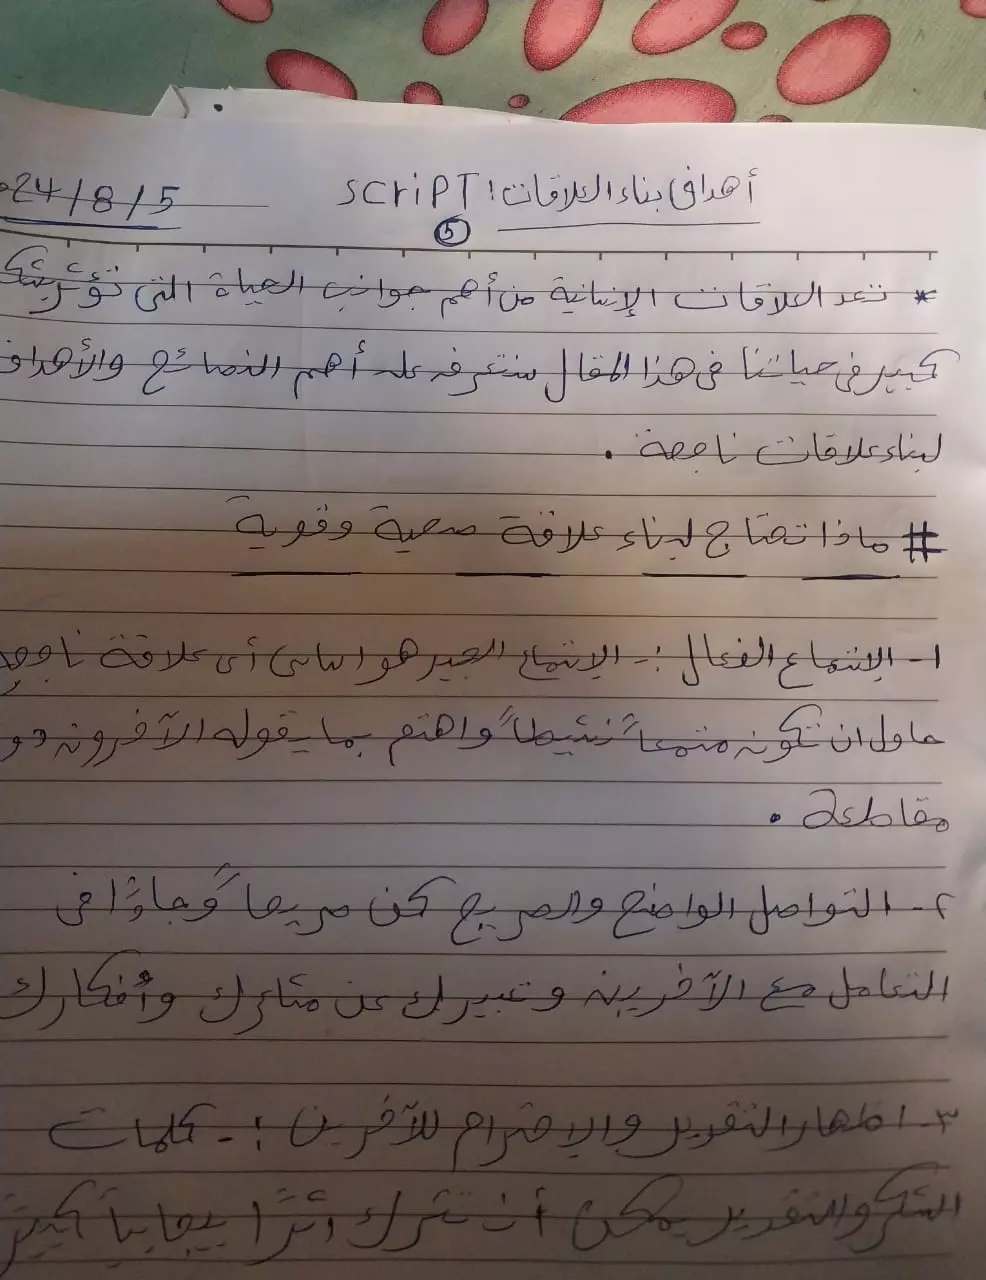 أهداف بناء العلاقات: SCRiPT
24/8/5
5
* تعد العلاقات الإنسانية من أهم جوانب الحياة التى تؤثر بشكل
كبير فى حياتنا فى هذا المقال سنتعرف على أهم النصائح والأهداف
لبناء علاقات ناجحة .
# ماذا تحتاج لبناء علاقة صحية وقوية
١- الإستماع الفعال :- الإستماع الجيد هو اساس أى علاقة ناجحة
حاول ان تكون مستمعاً نشيطاً واهتم بما يقوله الآخرون دو
مقاطعة .
٢- التواصل الواضح والصريح كن صريحاً و فى
التعامل مع الآخرين وتعبيرك عن مشاعرك وأفكارك
٣- اظهار التقدير والإحترام للآخرين :- كلمات
الشكر والتقدير يمكن أن تترك أثرًا إيجابياً كبيرً